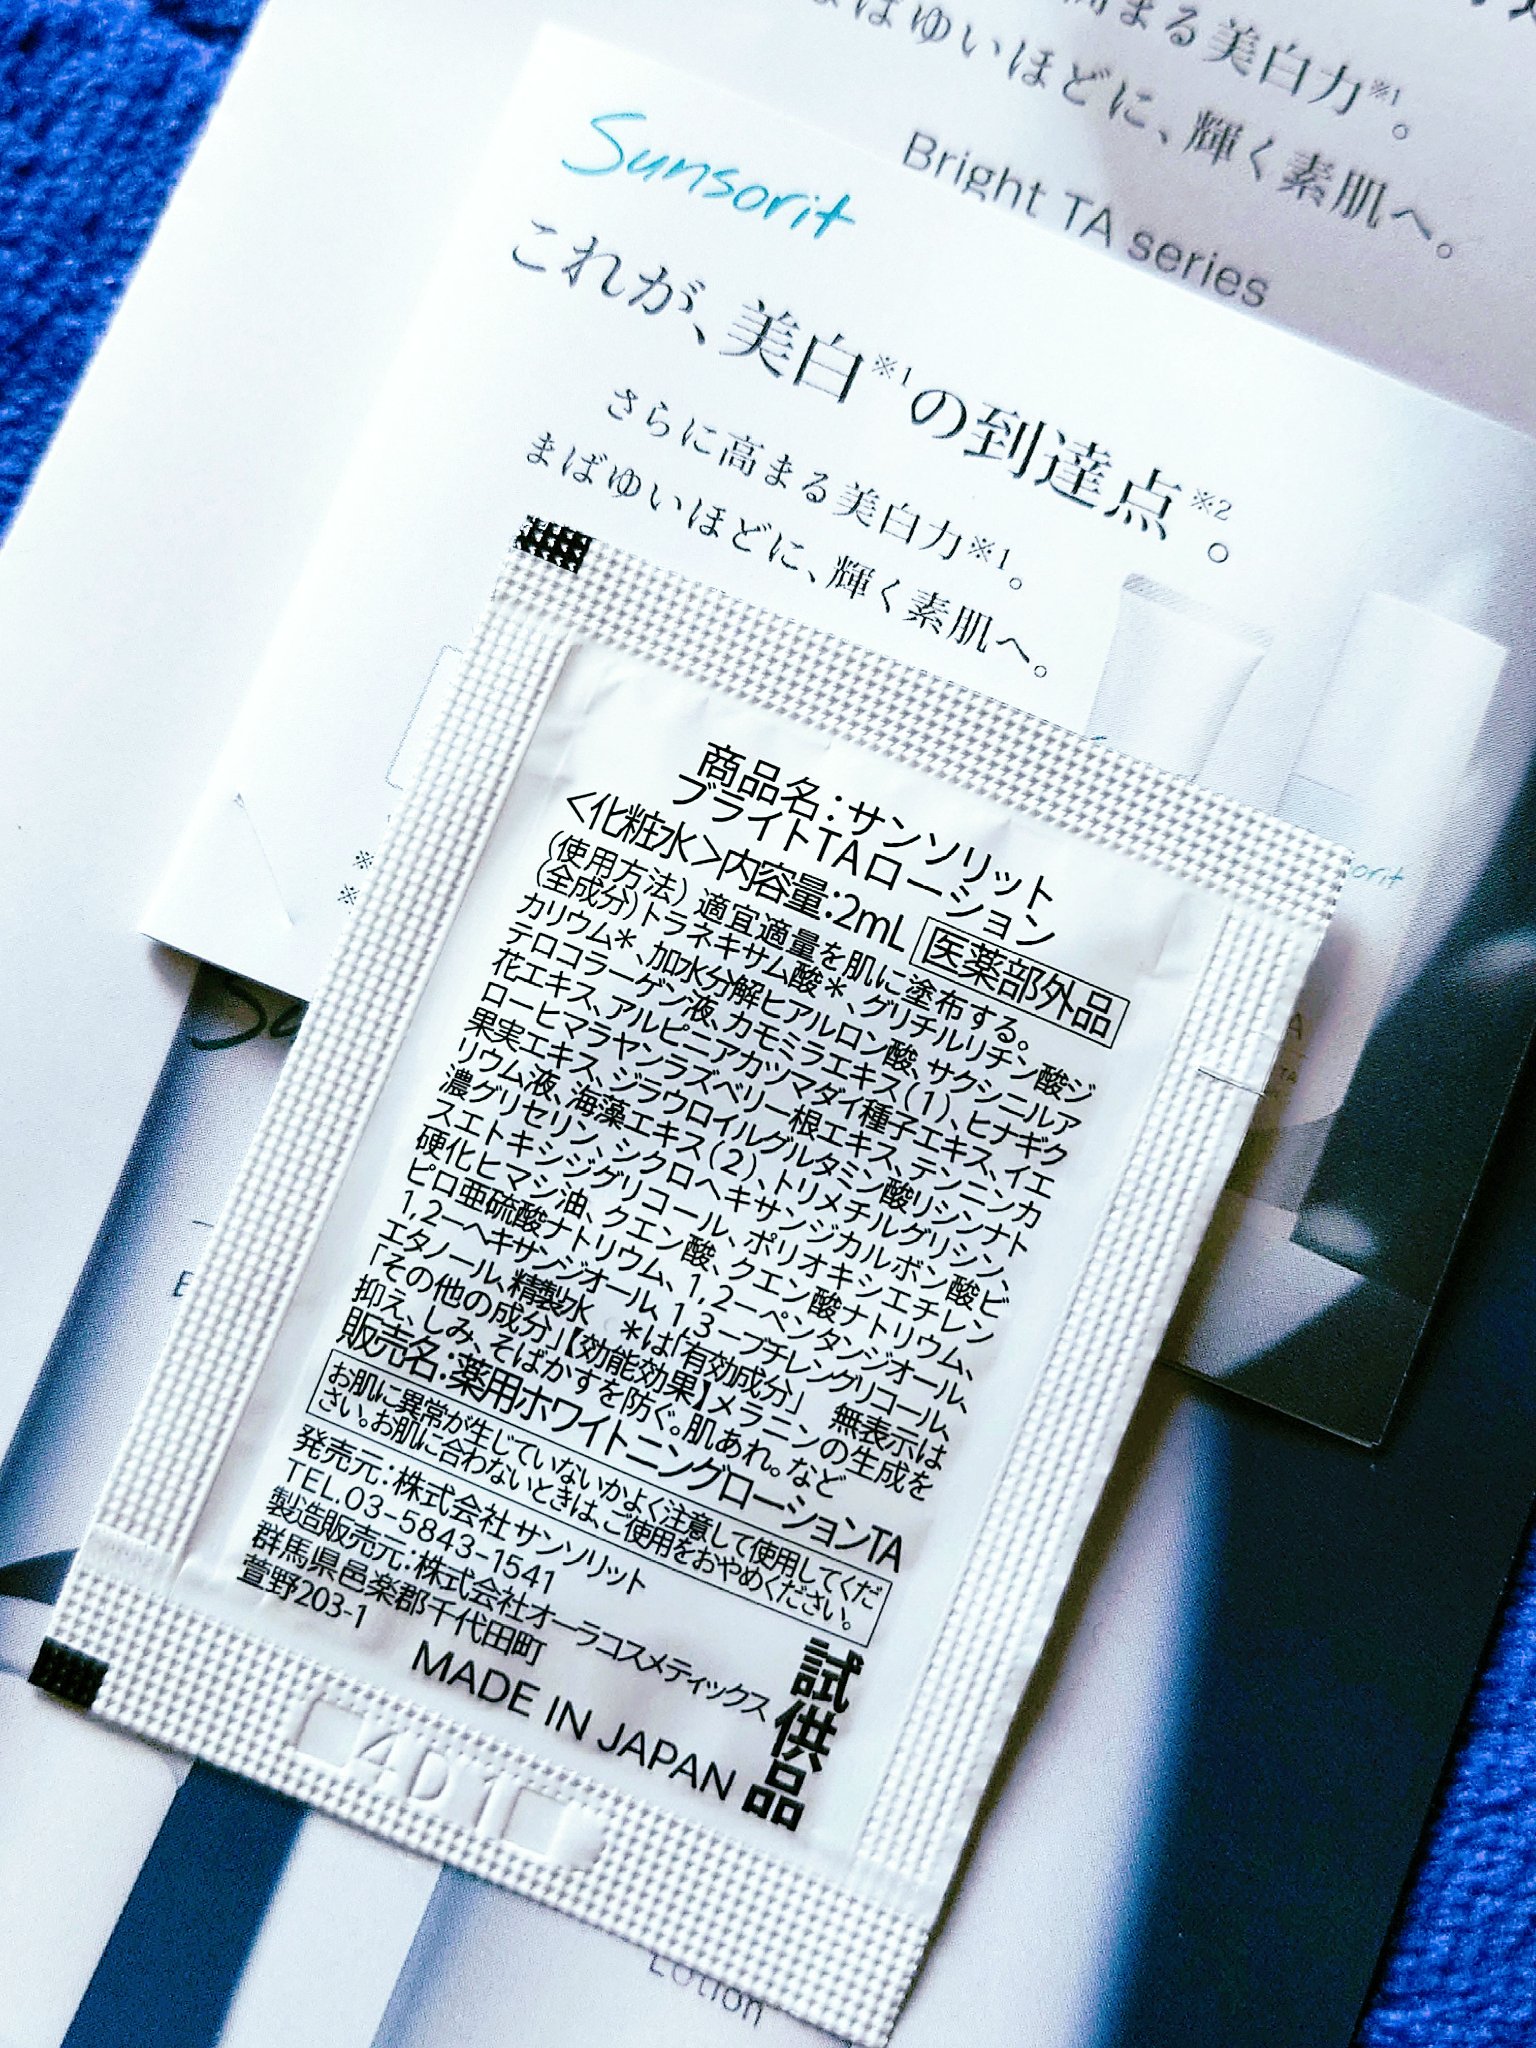 高まる美白力※1。
まばゆいほどに、輝く素肌へ。
Bright TA series
Sunsorit
これが、美白※1の到達点※2。
さらに高まる美白力※1。
まばゆいほどに、輝く素肌へ。
商品名：サンソリット
ブライトTAローション
<化粧水>内容量:2mL 医薬部外品
(使用方法) 適宜適量を肌に塗布する。
(全成分)トラネキサム酸＊、グリチルリチン酸ジ
カリウム＊、加水分解ヒアルロン酸、サクシニルア
テロコラーゲン液、カモミラエキス(1)、ヒナギク
花エキス、アルピニアカツマダイ種子エキス、イエ
ローヒマラヤンラズベリー根エキス、テンニンカ
果実エキス、ジラウロイルグルタミン酸リシンナト
リウム液、海藻エキス(2)、トリメチルグリシン、
濃グリセリン、シクロヘキサンジカルボン酸ビ
スエトキシジグリコール、ポリオキシエチレン
硬化ヒマシ油、クエン酸、クエン酸ナトリウム、
ピロ亜硫酸ナトリウム、1,2－ペンタンジオール、
1,2－ヘキサンジオール、1,3－ブチレングリコール、
エタノール、精製水　＊は「有効成分」　無表示は
「その他の成分」【効能効果】メラニンの生成を
抑え、しみ、そばかすを防ぐ。肌あれ。など
販売名：薬用ホワイトニングローションTA
お肌に異常が生じていないかよく注意して使用してくだ
さい。お肌に合わないときは、ご使用をおやめください。
発売元：株式会社サンソリット
TEL.03-5843-1541
製造販売元：株式会社オーラコスメティックス
群馬県邑楽郡千代田町
萱野203-1
MADE IN JAPAN
試供品
Lotion